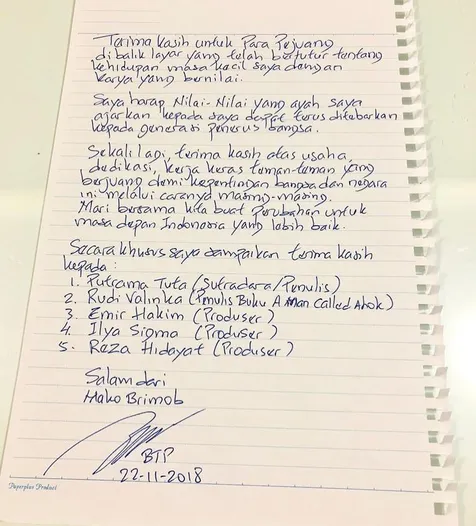 Terima kasih untuk Para Pejuang
di balik layar yang telah bertutur tentang
kehidupan masa kecil saya dengan
karya yang bernilai.
Saya harap Nilai-Nilai yang ayah saya
ajarkan kepada saya dapat terus ditebarkan
kepada generasi penerus bangsa.
Sekali lagi, terima kasih atas usaha,
dedikasi, kerja keras teman-teman yang
berjuang demi kepentingan bangsa dan negara
ini melalui caranya masing-masing.
Mari bersama kita buat perubahan untuk
masa depan Indonesia yang lebih baik.
Secara khusus saya sampaikan terima kasih
kepada :
1. Putrama Tuta (Sutradara/Penulis)
2. Rudi Valinka (Penulis Buku A Man Called Ahok)
3. Emir Hakim (Produser)
4. Ilya Sigma (Produser)
5. Reza Hidayat (Produser)
Salam dari
Mako Brimob
BTP
22-11-2018
Paperplus Product